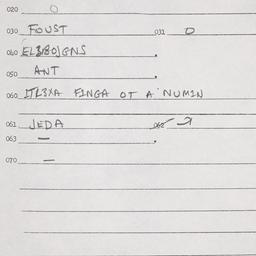 020 O
030 FOUST 031 O
040 EL3180JGNS
050 ANT
060 ITL3XA FINGA OT A NUMIN
061 JEDA 062
063 —
070 —